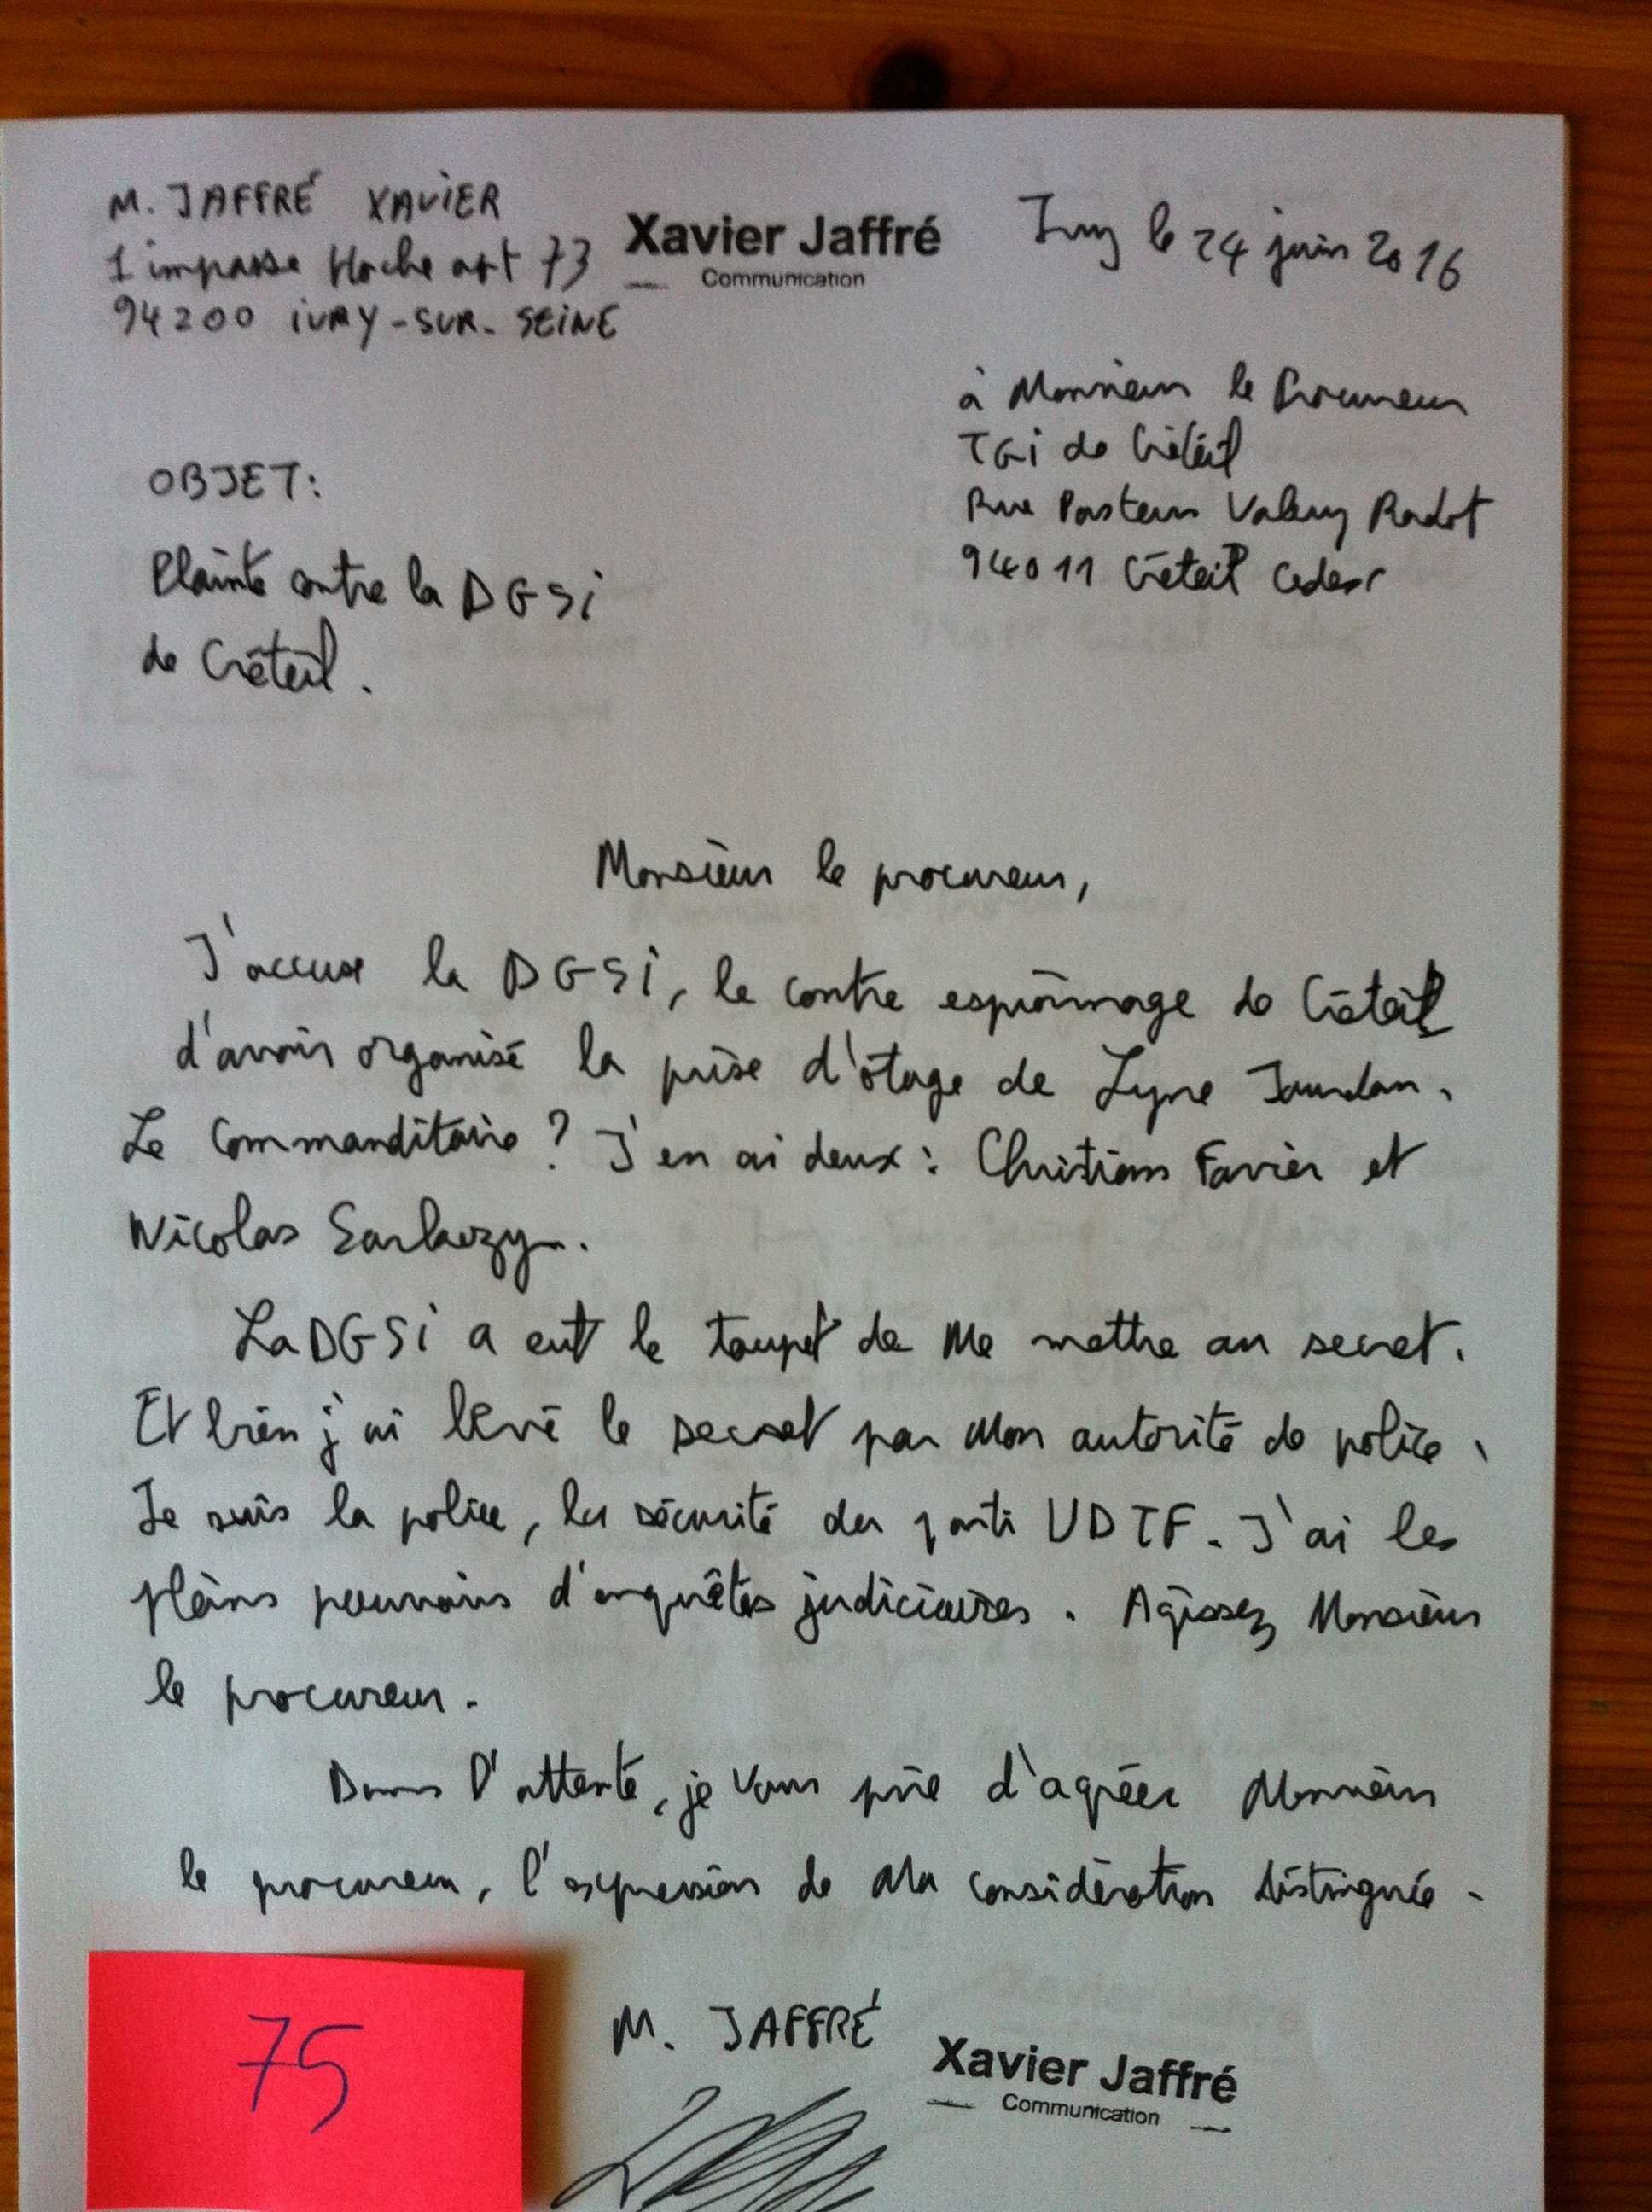 M. JAFFRÉ XAVIER
1 impasse Hoche apt 73
94200 IVRY-SUR-SEINE
Xavier Jaffré
Communication
Ivry le 24 juin 2016
à Monsieur le Procureur
TGI de Créteil
Rue Pasteur Valery Radot
94011 Créteil Cedex
OBJET:
Plainte contre la DGSI
de Créteil.
Monsieur le procureur,
J'accuse la DGSI, le contre espionnage de Créteil
d'avoir organisé la prise d'ôtage de Lyne Jourdan.
Le Commanditaire ? J'en ai deux : Christian Favier et
Nicolas Sarkozy.
La DGSI a eut le toupet de me mettre au secret.
Et bien j'ai levé le secret par mon autorité de police.
Je suis la police, la sécurité du parti UDTF. J'ai les
pleins pouvoirs d'enquêtes judiciaires. Agissez Monsieur
le procureur.
Dans l'attente, je vous prie d'agréer Monsieur
le procureur, l'expression de ma considération distinguée.
75
M. JAFFRÉ
Xavier Jaffré
Communication